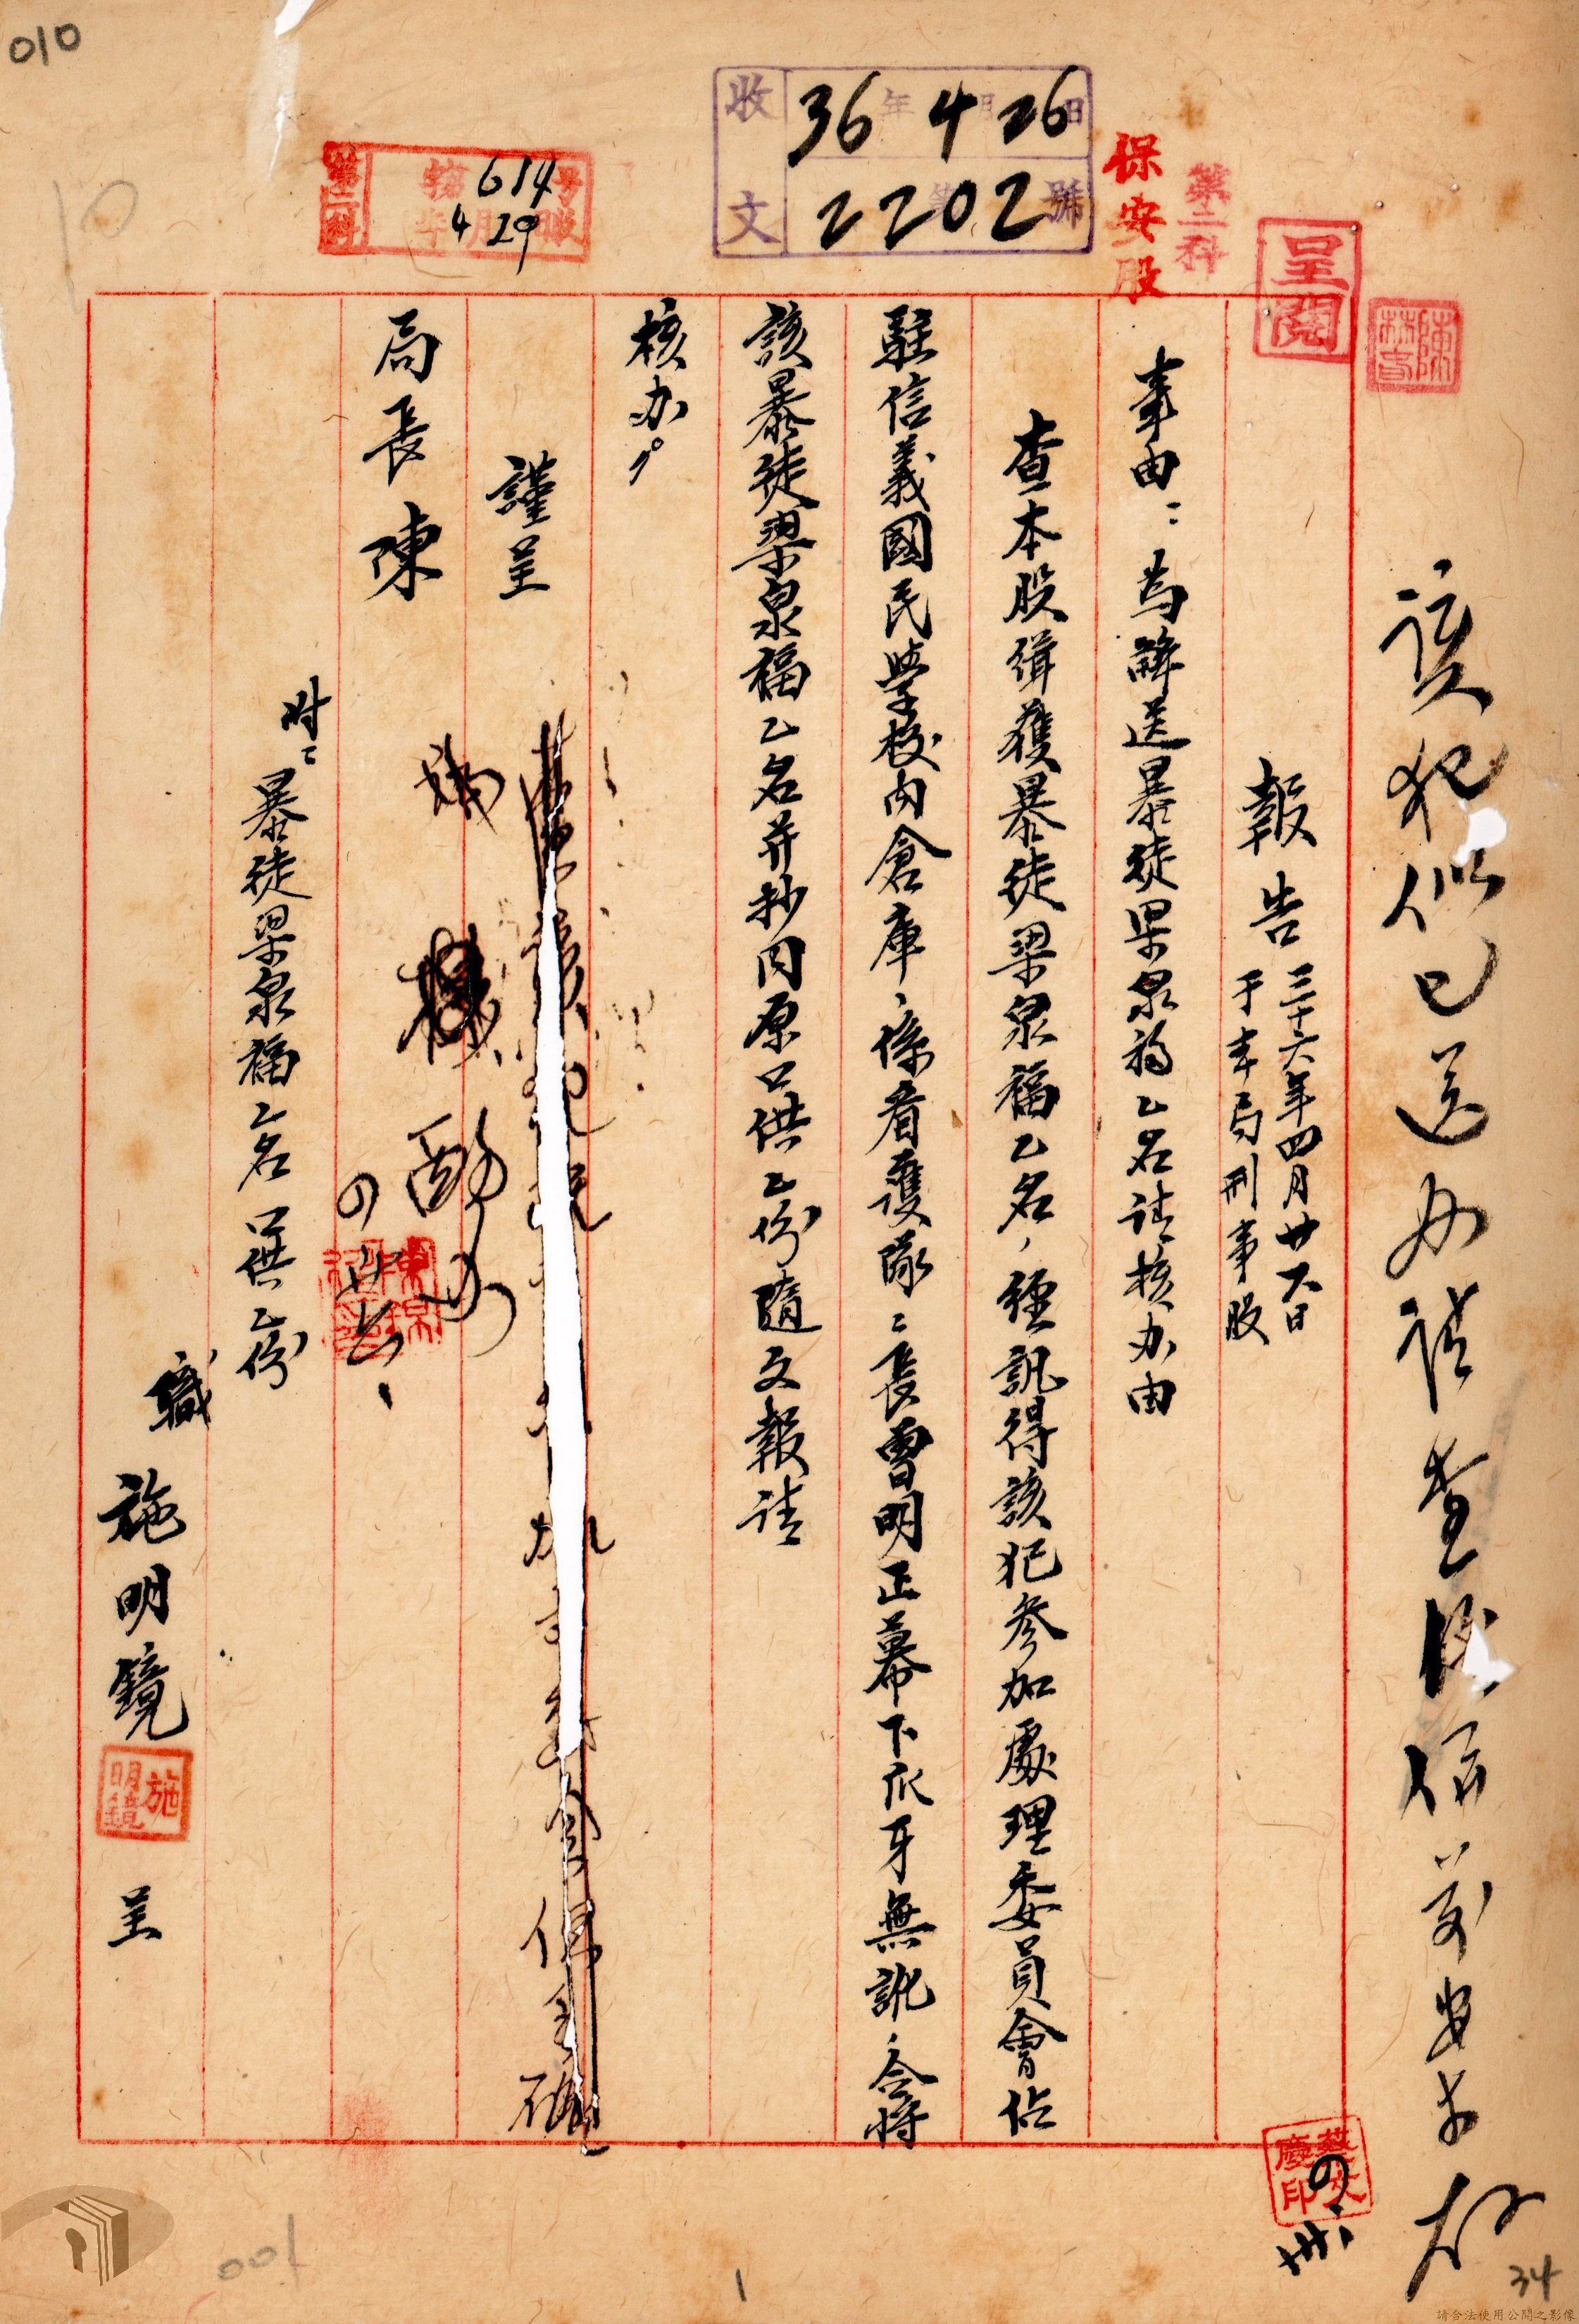 010
收文 36年4月26日
第2202號
614號
4月29
第二科
第二科
保安股
呈閱
該犯似已送 請查
報告 三十六年四月廿六日
于本局刑事股
事由：為解送暴徒梁泉福乙名請核办由
查本股緝獲暴徒梁泉福乙名，經訊得該犯參加處理委員會佔
駐信義國民學校內倉庫、係看護隊々長曹明正幕下爪牙無訛、合將
該暴徒梁泉福乙名并抄同原口供乙份隨文報請
核办。
謹呈
局長陳
附：暴徒梁泉福乙名 口供乙份
職 施明鏡 呈
施明鏡
001
1
34
請合法使用公開之影像